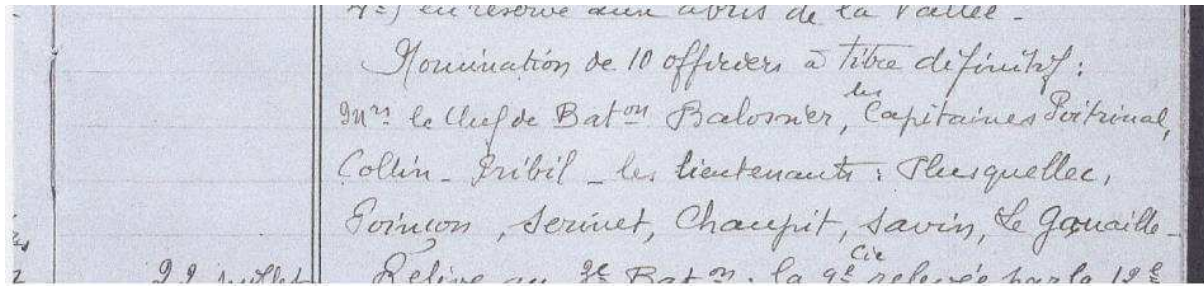 4e) en réserve aux abris de la Vallée.
Nomination de 10 officiers à titre définitif :
Mrs le Chef de Baton Balosnier, les Capitaines Poitrinal,
Collin - Pribil - les lieutenants : Plusquellec,
Poinçon, Serinet, Chaupit, Savin, Le Gouaille-
22 juillet Relève au 3e Baton : la 9e Cie relevée par la 12e